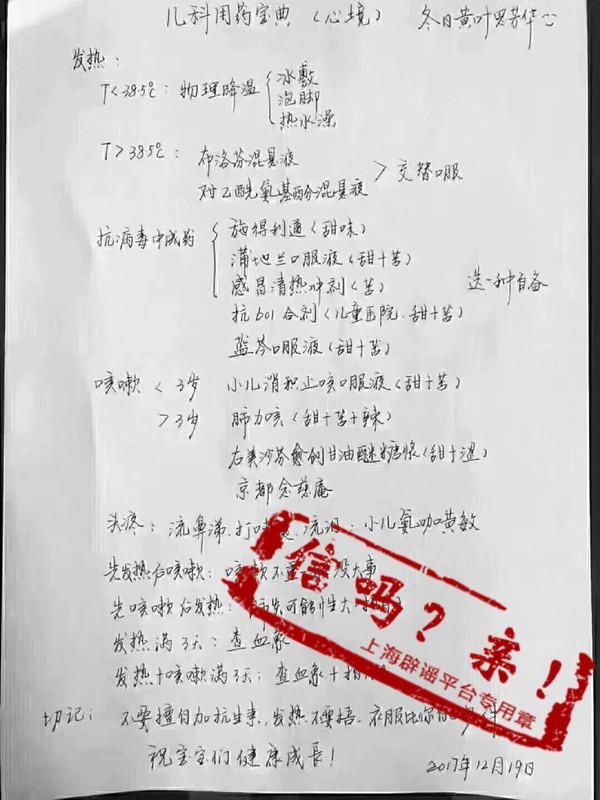 儿科用药宝典（心境） 冬日黄叶
发热：
T<38.5℃：物理降温 冰敷
泡脚
热水澡
T>38.5℃：布洛芬混悬液
对乙酰氨基酚分混悬液 > 交替口服
抗病毒中成药 施得利通（甜味）
蒲地兰口服液（甜+苦）
感冒清热冲剂（苦） 选一种自备
抗601合剂（儿童医院.甜+苦）
蓝芩口服液（甜+苦）
咳嗽 <3岁 小儿消积止咳口服液（甜+苦）
>3岁 肺力咳（甜+苦+辣）
右美沙芬愈创甘油醚糖浆（甜+涩）
京都念慈庵
头疼：流鼻涕.打 流泪：小儿氨咖黄敏
先发热后咳嗽：咳嗽不 没大事
先咳嗽后发热： 可能性大
发热满3天：查血象
发热+咳嗽满3天：查血象+拍
切记：不要擅自加抗生素，发热不要捂，衣服比你
祝宝宝们健康成長！
2017年12月19日
信吗？亲！
上海辟谣平台专用章